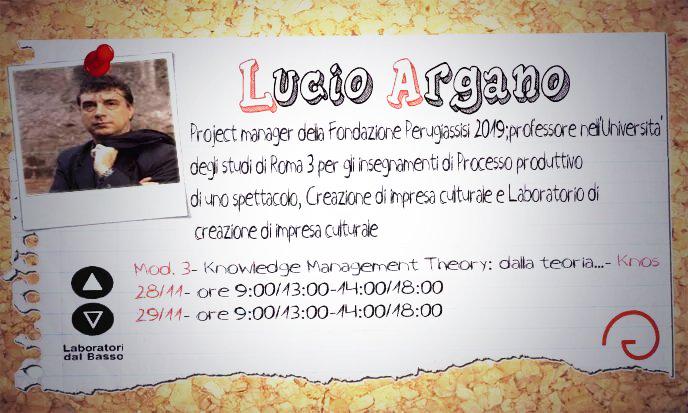 Lucio Argano
Project manager della Fondazione Perugiassisi 2019;professore nell'Universita'
degli studi di Roma 3 per gli insegnamenti di Processo produttivo
di uno spettacolo, Creazione di impresa culturale e Laboratorio di
creazione di impresa culturale
Mod. 3- Knowledge Management Theory: dalla teoria...- Knos
28/11- ore 9:00/13:00-14:00/18:00
29/11- ore 9:00/13:00-14:00/18:00
Laboratori
dal Basso